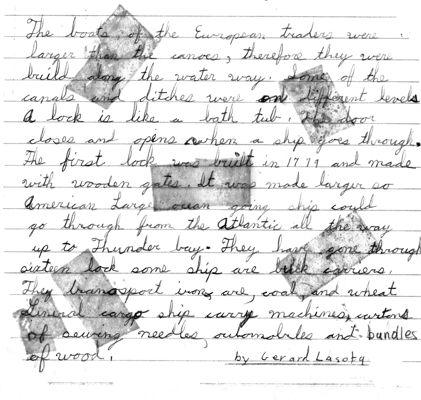 The boats of the European traders were
larger than the canoes, therefore they were
build along the water way. Some of the
canals and ditches were on different levels
A lock is like a bath tub. The door
closes and opens when a ship goes through.
The first lock was built in 1779 and made
with wooden gates. It was made larger so
American Large ocean going ship could
go through from the Atlantic all the way
up to Thunder bay. They have gone through
sixteen lock some ship are bulk carriers.
They transport iron, are, coal, and wheat
Lineral cargo ship carry machines, cartons
of sewing needles, automobiles and bundles
of wood.
by Gerard Lasota